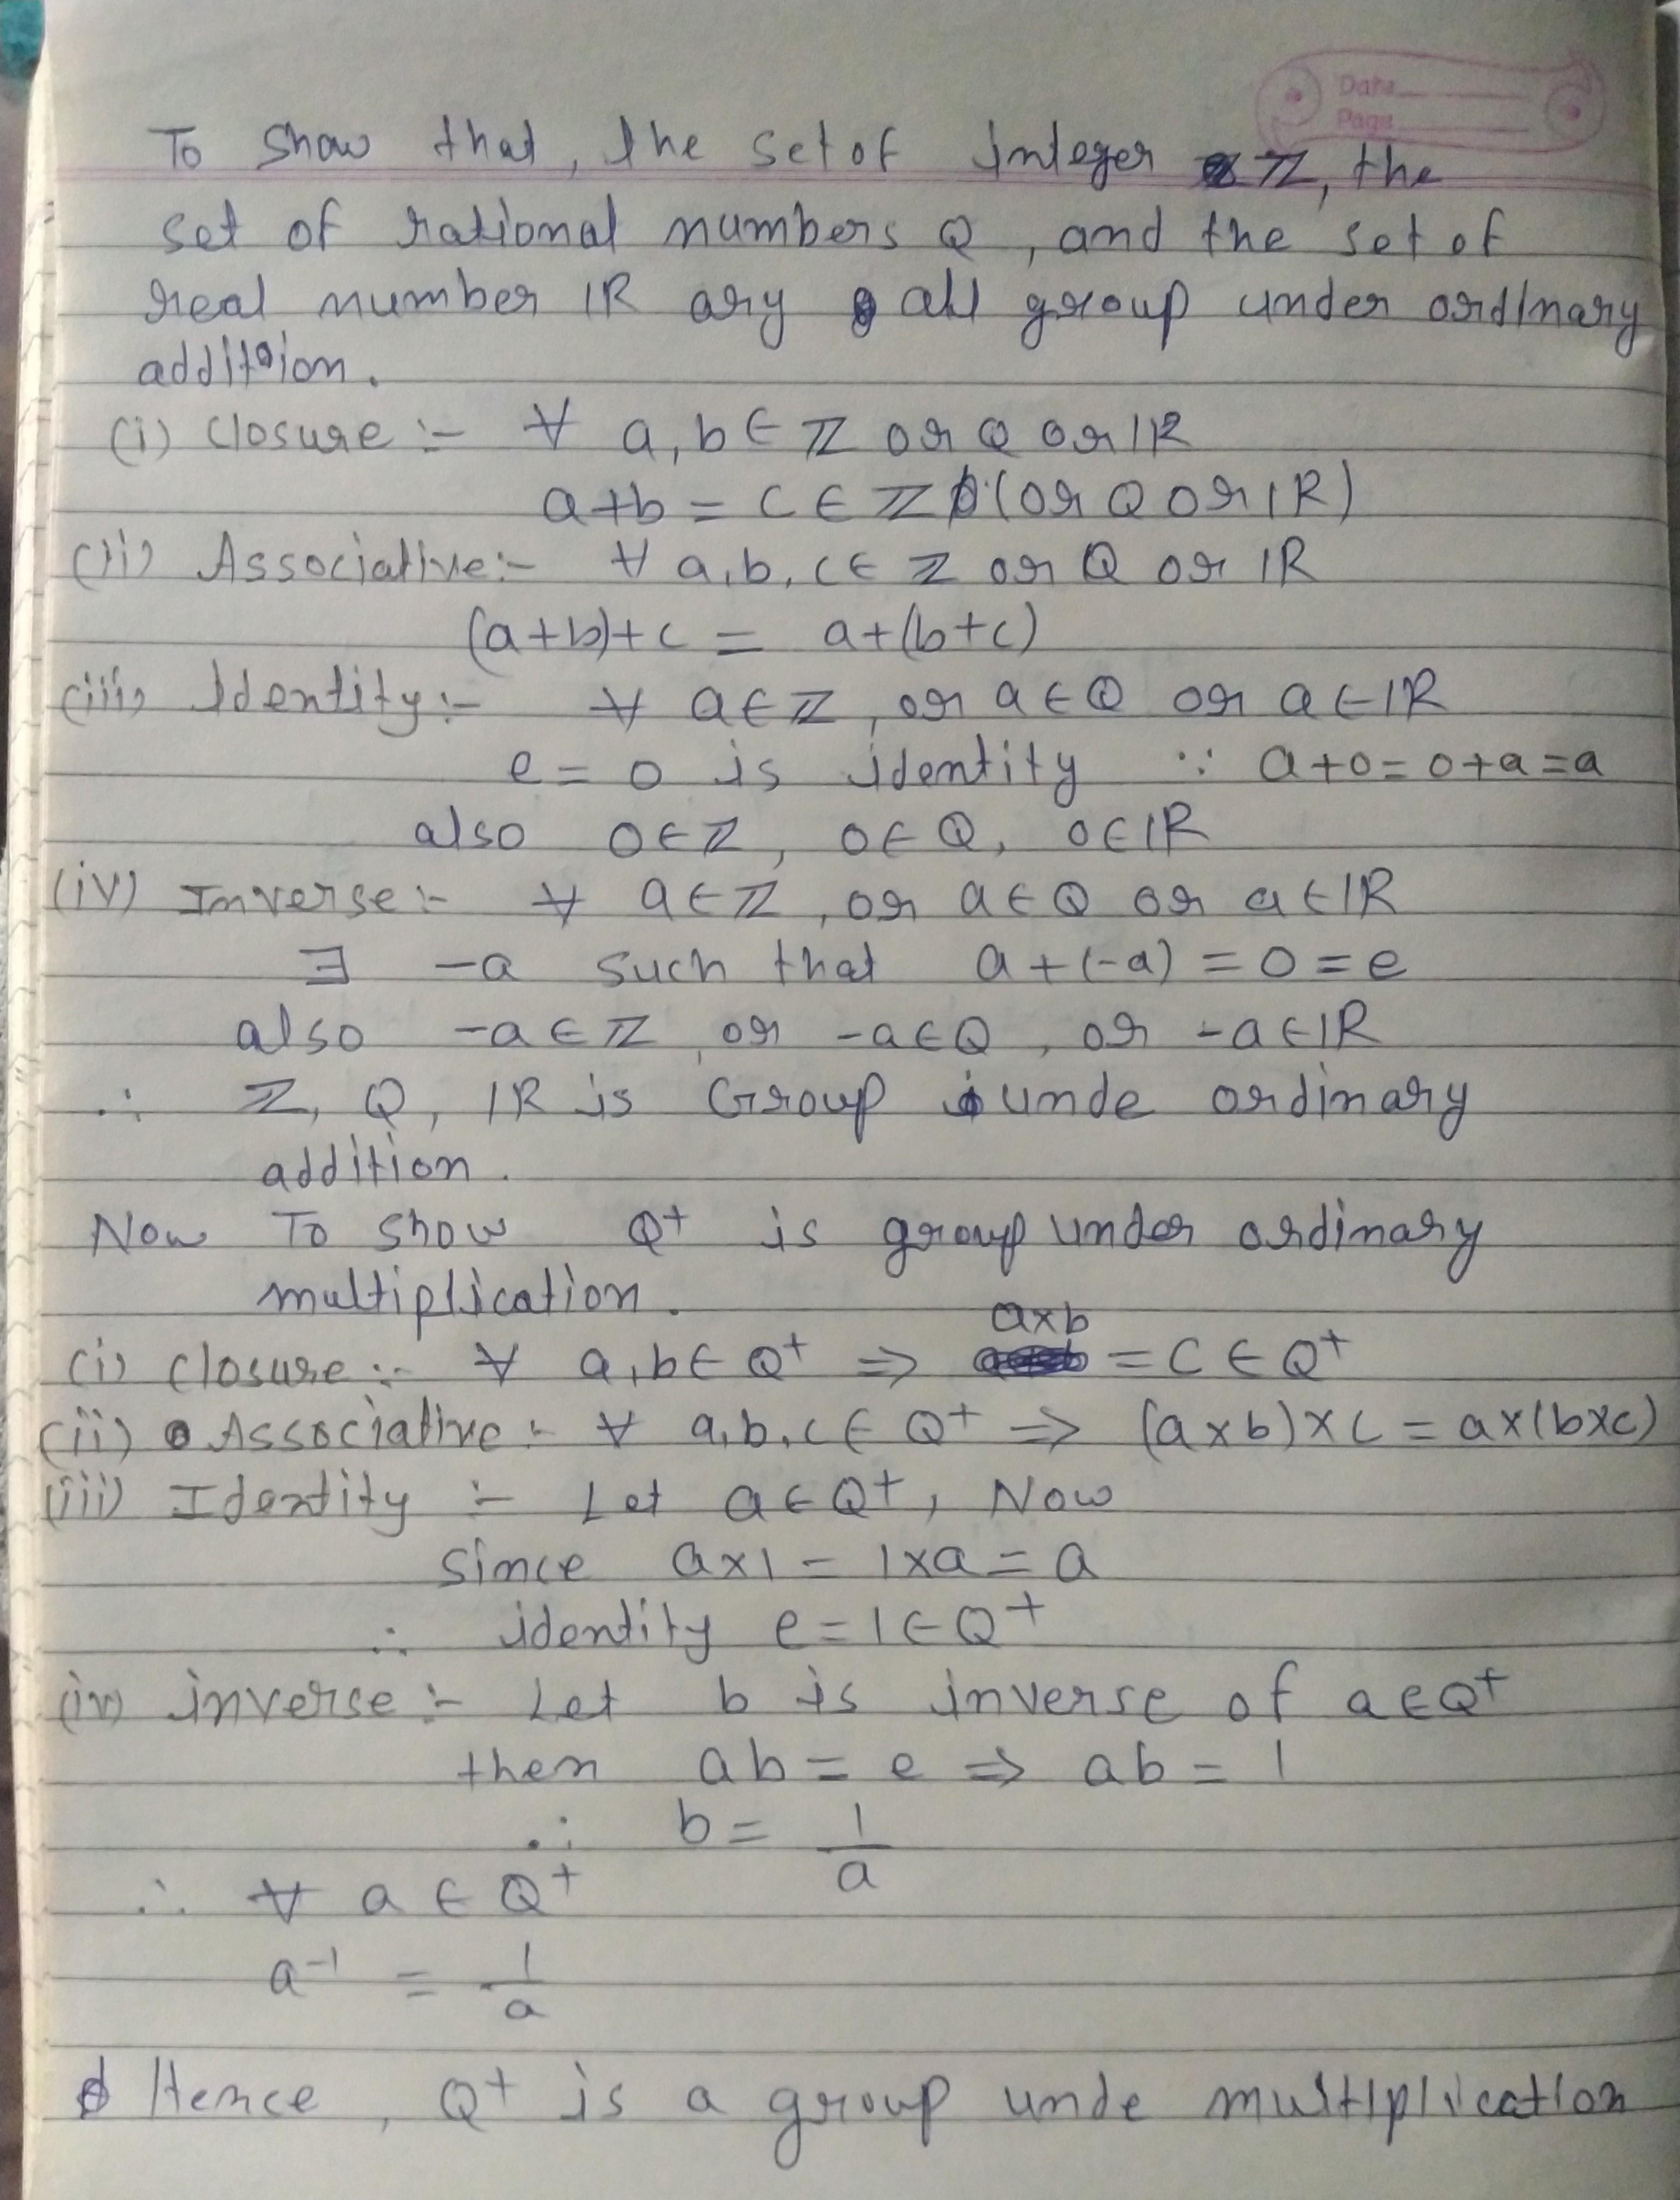 Date
Page
To show that, the set of Integer ℤ, the
set of rational numbers Q, and the set of
real number IR ary all group under ordinary
addition.
(i) Closure :- ∀ a, b ∈ ℤ or Q or IR
a+b = c ∈ ℤ (or Q or IR)
(ii) Associative:- ∀ a, b, c ∈ ℤ or Q or IR
(a+b)+c = a+(b+c)
(iii) Identity:- ∀ a∈ℤ, or a∈Q or a∈IR
e = 0 is identity ∵ a+0=0+a=a
also 0∈ℤ, 0∈Q, 0∈IR
(iv) Inverse:- ∀ a∈ℤ, or a∈Q or a∈IR
∃ -a such that a+(-a) = 0 = e
also -a∈ℤ, or -a∈Q, or -a∈IR
∴ ℤ, Q, IR is Group unde ordinary
addition.
Now To show Q⁺ is group under ordinary
multiplication.
(i) Closure:- ∀ a, b∈ Q⁺ ⇒ a×b = c ∈ Q⁺
(ii) Associative:- ∀ a, b, c∈ Q⁺ ⇒ (a×b)×c = a×(b×c)
(iii) Identity :- Let a∈Q⁺, Now
since a×1 = 1×a = a
∴ identity e=1∈Q⁺
(iv) inverse:- Let b is inverse of a∈Q⁺
then ab = e ⇒ ab = 1
∴ b = 1/a
∴ ∀ a ∈ Q⁺
a⁻¹ = 1/a
Hence, Q⁺ is a group unde multiplication